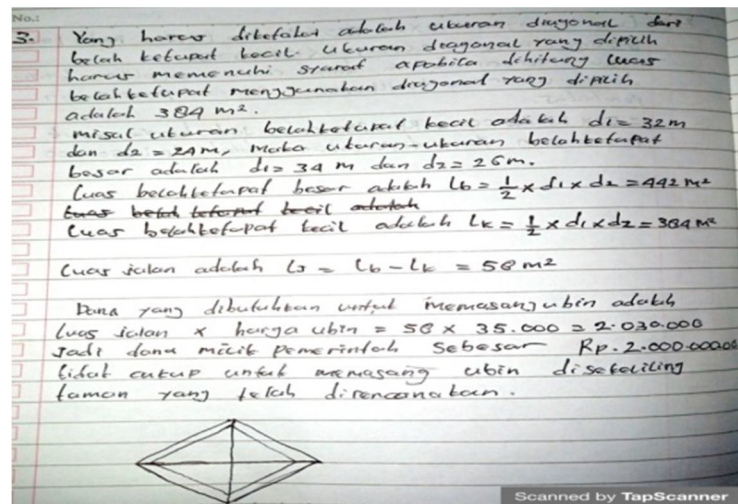 No.:
3. Yang harus diketahui adalah ukuran diagonal dari
belah ketupat kecil. Ukuran diagonal yang dipilih
harus memenuhi syarat apabila dihitung luas
belah ketupat menggunakan diagonal yang dipilih
adalah 384 m².
misal ukuran belahketupat kecil adalah d1 = 32 m
dan d2 = 24 m, maka ukuran-ukuran belahketupat
besar adalah d1 = 34 m dan d2 = 26 m.
Luas belahketupat besar adalah Lb = 1/2 x d1 x d2 = 442 m²
Luas belah ketupat kecil adalah
Luas belahketupat kecil adalah Lk = 1/2 x d1 x d2 = 384 m²
Luas jalan adalah LJ = Lb - Lk = 58 m²
Dana yang dibutuhkan untuk memasang ubin adalah
luas jalan x harga ubin = 58 x 35.000 = 2.030.000
Jadi dana milik pemerintah sebesar Rp. 2.000.000,00
tidak cukup untuk memasang ubin disekeliling
taman yang telah direncanakan.
Scanned by TapScanner